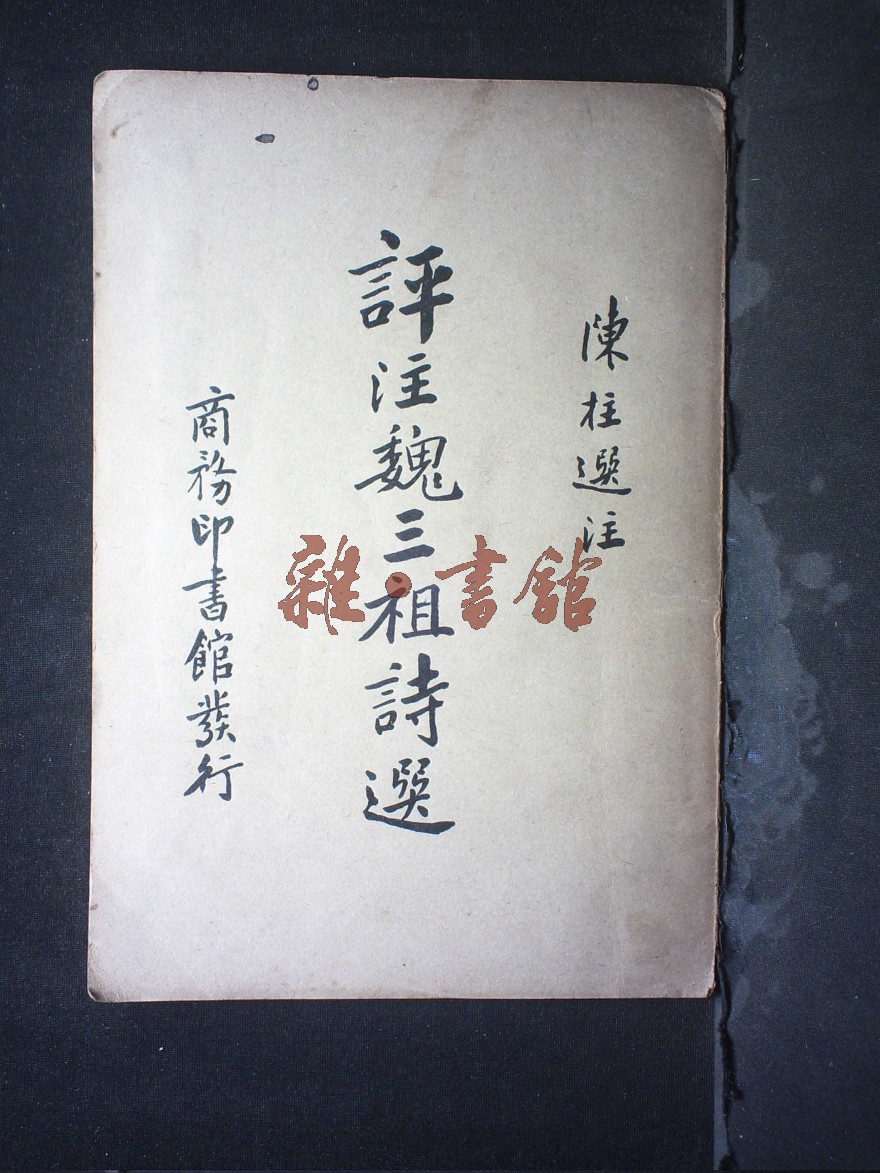 陳柱選注
評注魏三祖詩選
商務印書館發行
雜·書館